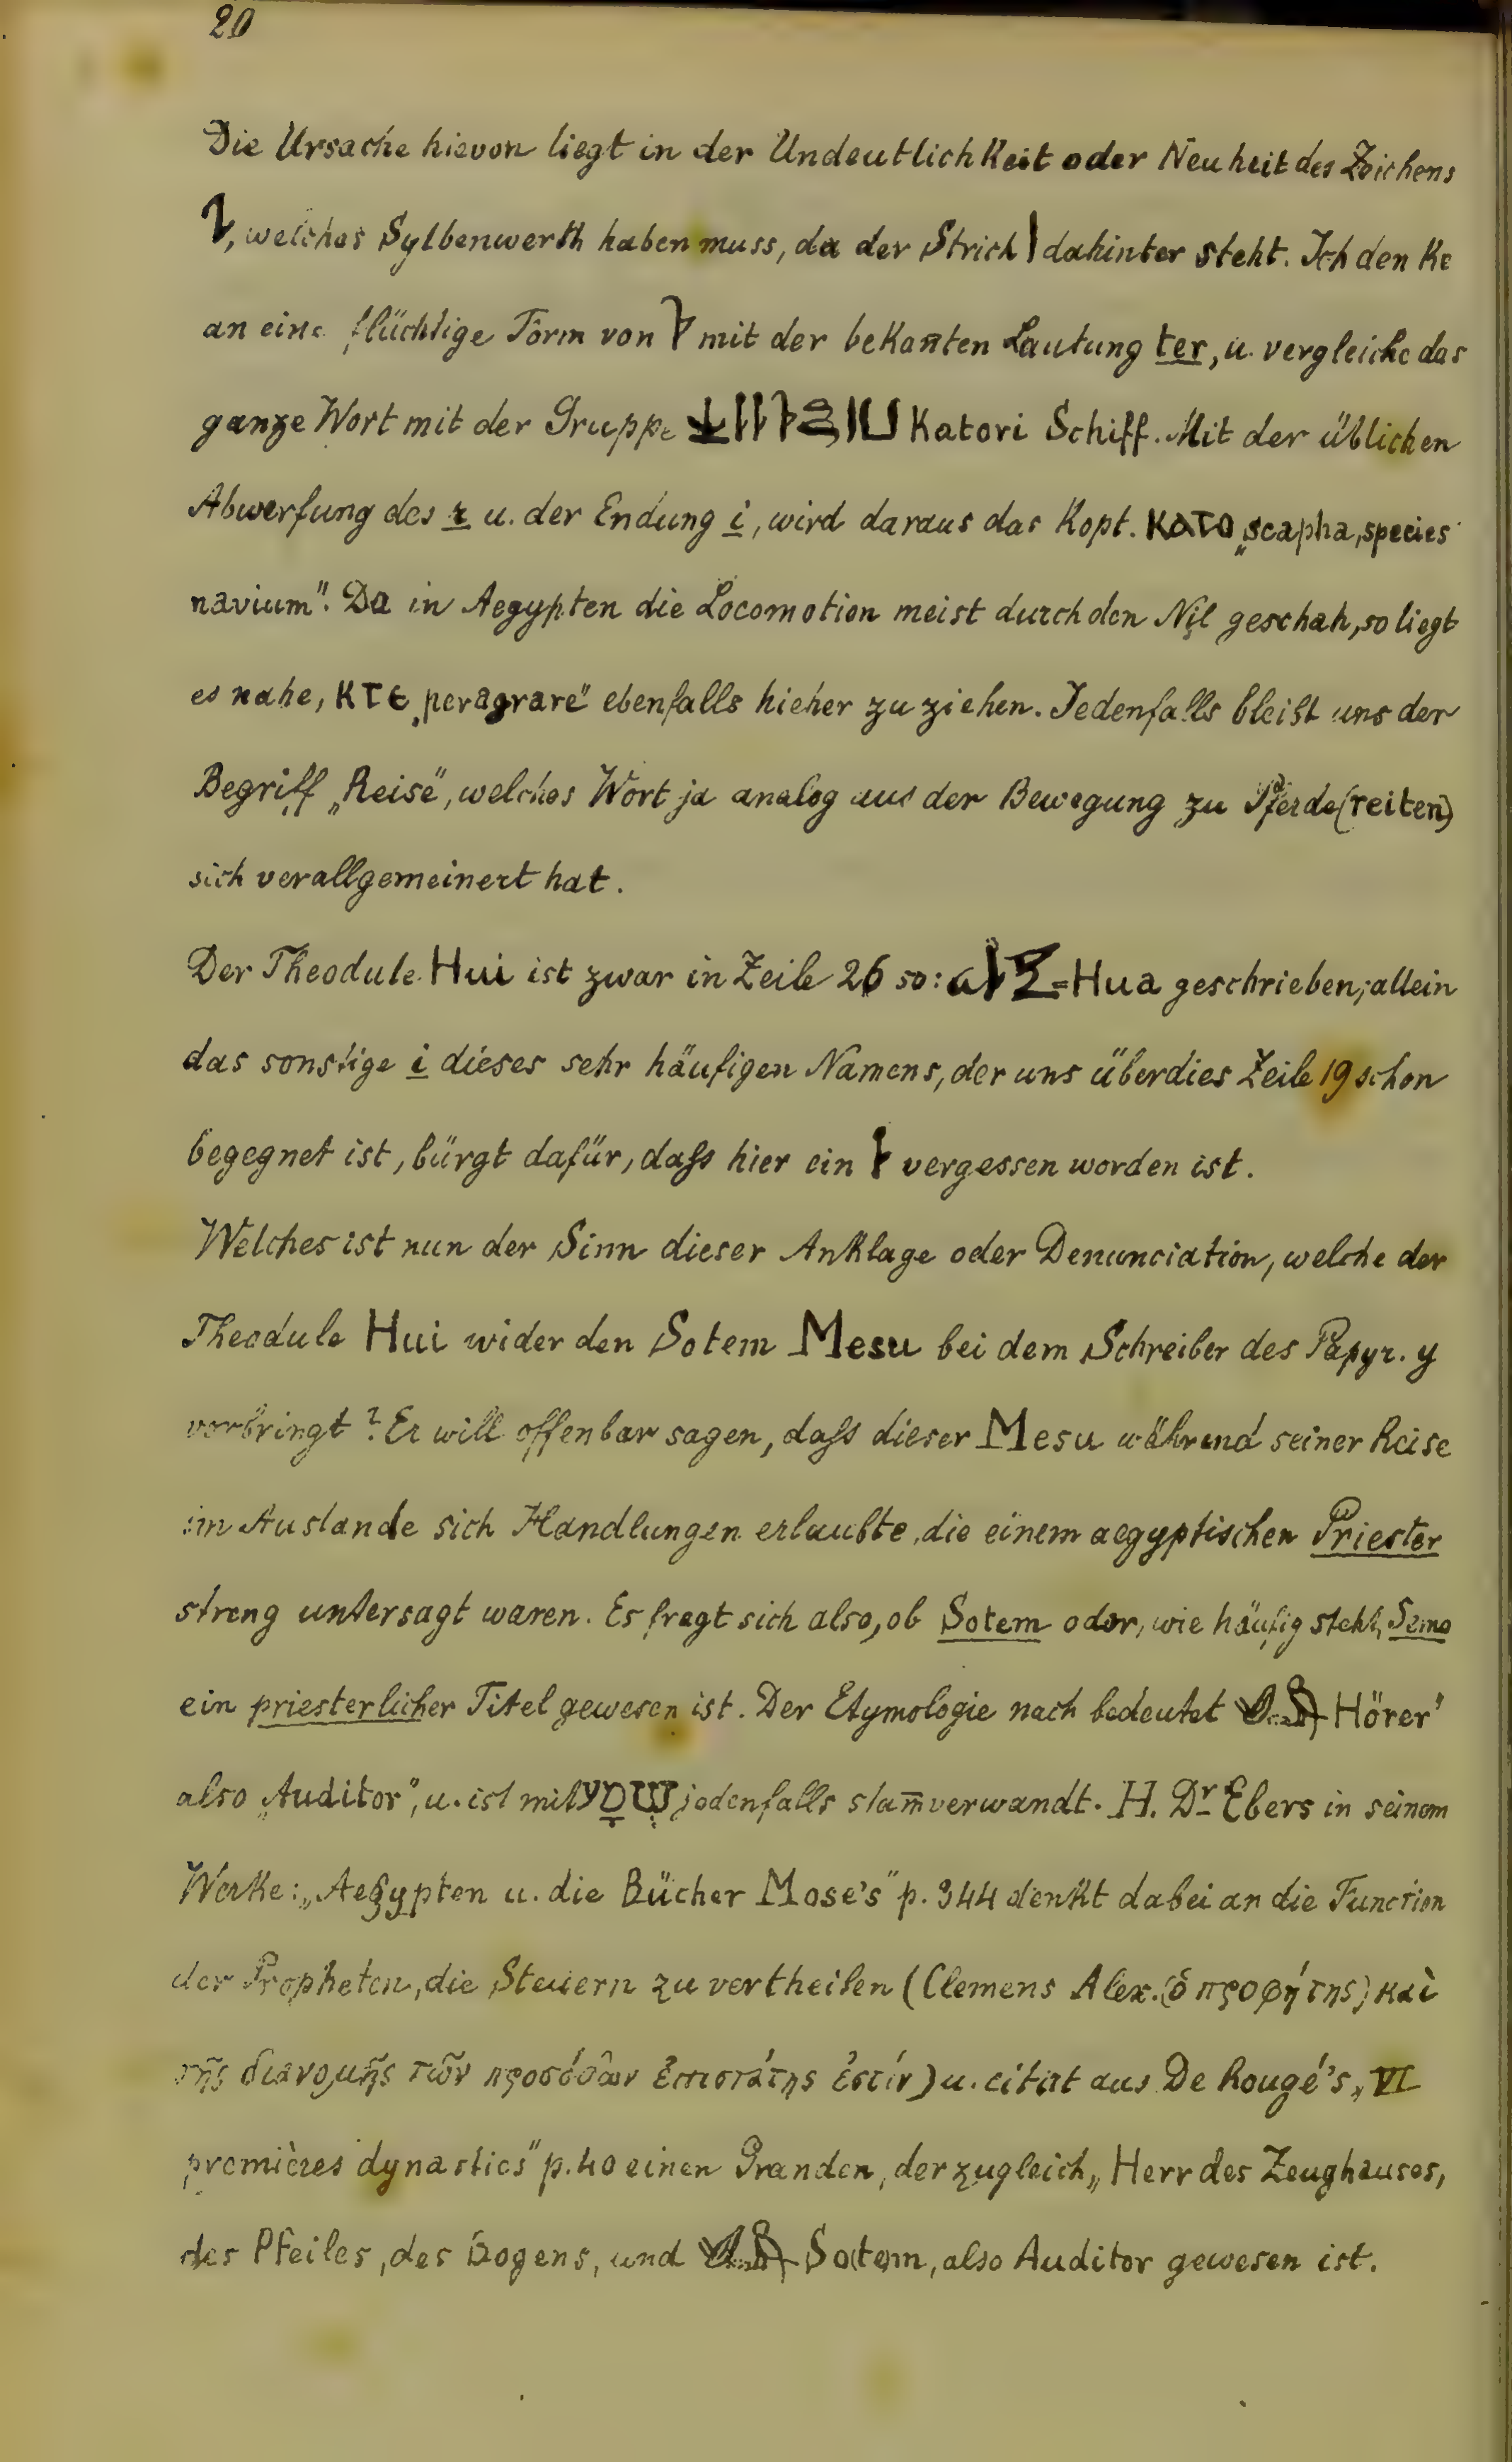 20
Die Ursache hievon liegt in der Undeutlichkeit oder Neuheit des Zeichens
, welches Sylbenwerth haben muss, da der Strich | dahinter steht. Ich denke
an eine flüchtige Form von mit der bekan̅ten Lautung ter, u. vergleiche das
ganze Wort mit der Gruppe Katori Schiff. Mit der üblichen
Abwerfung des r u. der Endung i, wird daraus das Kopt. ⲕⲁⲧⲟ „scapha, species
navium“. Da in Aegypten die Locomotion meist durch den Nil geschah, so liegt
es nahe, ⲕⲧⲉ „peragrare“ ebenfalls hieher zu ziehen. Jedenfalls bleibt uns der
Begriff „Reise“, welches Wort ja analog aus der Bewegung zu Pferde (reiten)
sich verallgemeinert hat.
Der Theodule Hui ist zwar in Zeile 26 so: = Hua geschrieben; allein
das sonstige i dieses sehr häufigen Namens, der uns überdies Zeile 19 schon
begegnet ist, bürgt dafür, daſs hier ein vergessen worden ist.
Welches ist nun der Sinn dieser Anklage oder Denunciation, welche der
Theodule Hui wider den Sotem Mesu bei dem Schreiber des Papyr. y
vorbringt? Er will offenbar sagen, daſs dieser Mesu während seiner Reise
im Auslande sich Handlungen erlaubte, die einem aegyptischen Priester
streng untersagt waren. Es fragt sich also, ob Sotem oder, wie häufig steht,
ein priesterlicher Titel gewesen ist. Der Etymologie nach bedeutet Hörer“
also „Auditor“, u. ist mit שמע jedenfalls stam̅verwandt. H. Dr Ebers in seinem
Werke: „Aegypten u. die Bücher Mose's“ p. 344 denkt dabei an die Function
der Propheten, die Steuern zu vertheilen (Clemens Alex. (ὁ προφήτης) καὶ
τῆς διανομῆς τῶν προσόδων ἐπιστάτης ἐστίν) u. citirt aus De Rougé's „VI
premières dynasties“ p. 40 einen Granden, der zugleich „Herr des Zeughauses,
des Pfeiles, des Bogens, und Sotem, also Auditor gewesen ist.